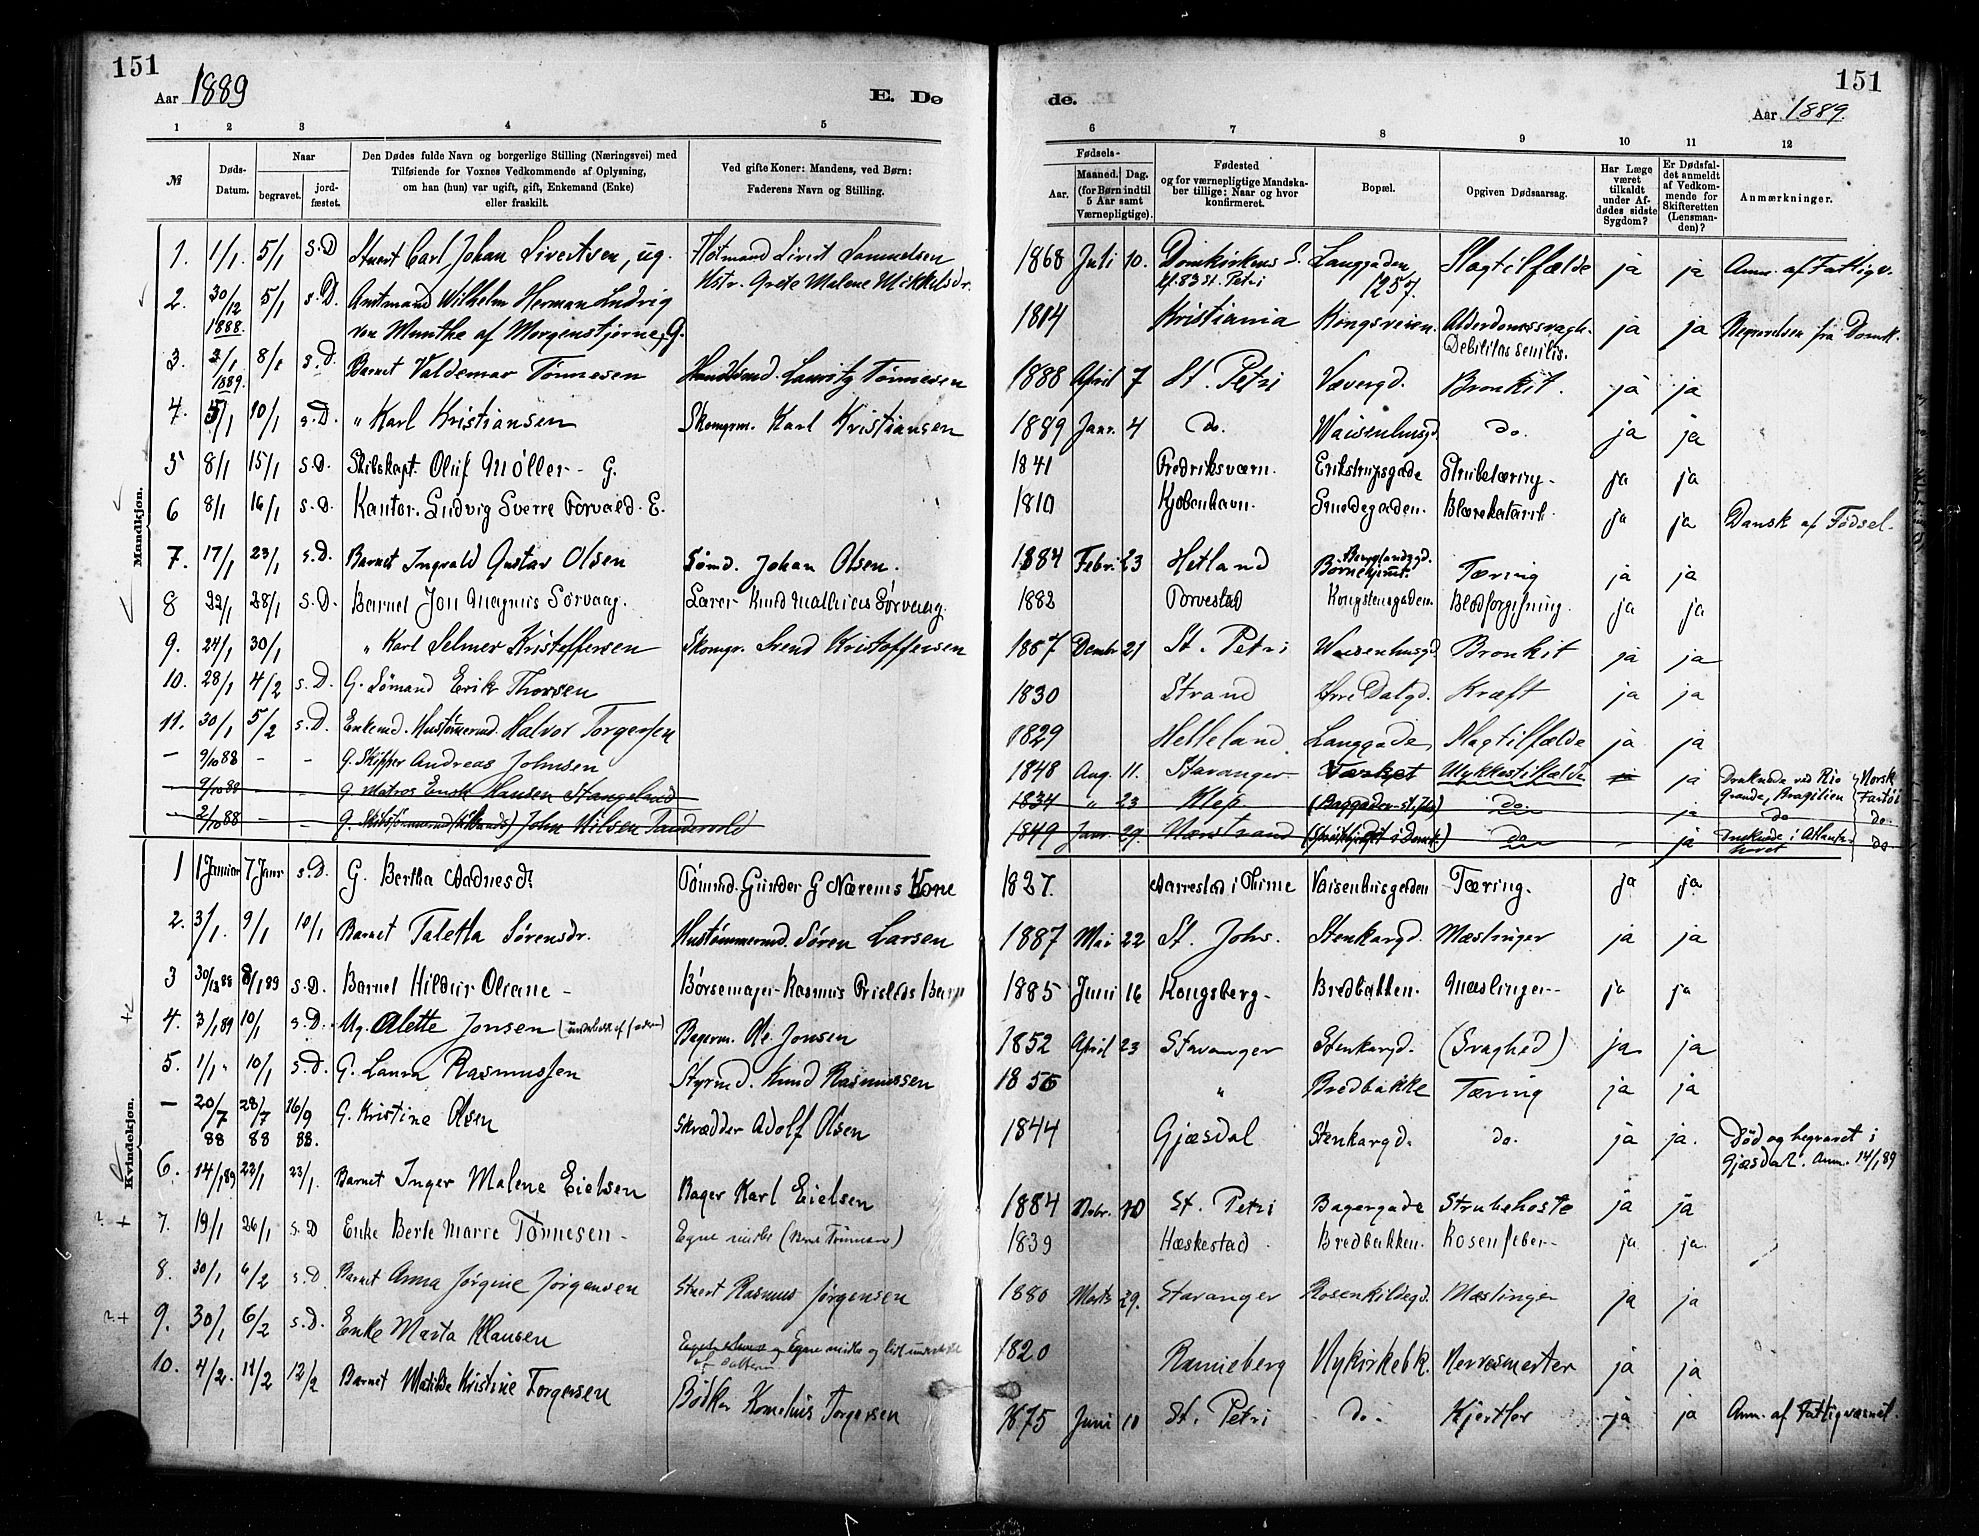 151
Aar 1889
E. Dø
de.
151
Aar 1889.
1 2 3 4 5 6 7 8 9 10 11 12
№
Døds-Datum.
Naar
begravet.
jord-fæstet.
Den Dødes fulde Navn og borgerlige Stilling (Næringsvei) med
Tilføiende for Voxnes Vedkommende af Oplysning,
om han (hun) var ugift, gift, Enkemand (Enke)
eller fraskilt.
Ved gifte Koner: Mandens, ved Børn:
Faderens Navn og Stilling.
Fødsels-
Aar.
Maaned. Dag.
(for Børn indtil
5 Aar samt
Værnepligtige).
Fødested
og for værnepligtige Mandska-
ber tillige: Naar og hvor
konfirmeret.
Bopæl.
Opgiven Dødsaarsag.
Har Læge været tilkaldt under Af-dødes sidste Sygdom?
Er Dødsfal-det anmeldt af Vedkom-mende for Skifteretten (Lensman-den)?
Anmærkninger.
Mandkjøn.
1. 1/1 5/1 s.D Stuert Carl Johan Sivertsen, ug. Flotmand Sivert Samuelsen 1868 Juli 10. Domkirkens S. Langgaden Slagtilfælde ja ja Anm. af Fattigv.
Hstr. Grete Malene Mikkelsdr. kf. 83 St. Petri 1257.
2. 30/12 1888. 5/1 s.D. Amtmand Wilhelm Herman Ludvig
von Munthe af Morgenstjerne, G. 1814 Kristiania Kongsveien. Alderdomssvagh. Debilitas senilis. ja ja Begravelsen fra Domk.
3. 2/1 1889. 8/1 s.D. Barnet Valdemar Tønnesen Handlsmd. Lauritz Tønnesen 1888 April 7 St. Petri Vævergd. Bronkit. ja ja
4. 5/1 10/1 s.D. " Karl Kristiansen Skomgrm. Karl Kristiansen 1889 Janr. 4 do. Waisenhusgd. do. ja ja
5 8/1 15/1 s.D. Skibskapt. Oluf Møller - G. 1841 Fredriksværn. Erikstrupsgade Strubetæring - ja ja
6 8/1 16/1 s.D. Kantor. Ludvig Sverre Torvald. E. 1810 Kjøbenhavn. Smedegaden. Blærekatarrh. ja ja Dansk af Fødsel.
7. 17/1 23/1 s.D. Barnet Ingvald Gustav Olsen Sømd. Johan Olsen. 1884 Febr. 23 Hetland Børnehjemt. Tæring ja ja
8 22/1 28/1 s.D. Barnet Jon Magnus Sørvaag. Lærer Knud Mathias Sørvaag. 1882 Torvestad Kongstensgaden. Blodforgiftning. ja ja
9. 24/1 30/1 " Karl Selmer Kristoffersen Skomgr. Svend Kristoffersen 1887 Decmbr 21 St. Petri Waisenhusgd. Bronkit ja ja
10. 28/1 4/2 s.D. G. Sømand Erik Thorsen 1830 Strand Øvre Dalgd. Kræft ja ja
11. 30/1 5/2 s.D. Enkemd. Hustømmermd. Halvor Torgersen 1829 Helleland Langgade Slagtilfælde ja ja
— 9/10 88 - - G. Skipper Andreas Johnsen 1848 Aug. 11. Stavanger Værket Ulykkestilfælde ja Druknede ved Rio Grande, Brasilien Norsk Fartøi
— 9/10 88 - G. Matros Enok Hansen Stangeland 1834 " 23 Klep do. ja do do.
— 2/10 88 - G. Skibstømmermd John Nilsen 1849 Janr. 29. do ja Druknede i Atlanterhavet do.
Kvindekjøn.
1 1 Januar 7 Janr s.D. G. Bertha Aadnesdt. Tømmd. Gunder G Nærems Kone 1827. Aarrestad i Thime Vaisenhusgaden Tæring. ja ja
2. 3/1. 9/1 10/1 Barnet Taletta Sørensdr. Hustømmermd. Søren Larsen 1887 Mai 22 St. Johs. Stenkargd. Mæslinger ja ja
3 30/12 88 8/1 89 s.D. Barnet Hildur Oleane - Børsemager Rasmus Barn 1885 Juni 16 Kongsberg - Bredbakken. Mæslinger- ja ja
4. 3/1 89 10/1 s.D. Ug. Alette Jonsen Bagerm. Ole Jonsen 1852 April 23 Stavanger Stenkargd. (Svaghed) ja ja
5. 1/1 " 10/1 s.D. G. Laura Rasmussen Styrmd. Knud Rasmussen 1856 " Bredbakke Tæring ja ja
— 20/7 88 28/7 88 16/9 88. G. Kristine Olsen Skrædder Adolf Olsen 1844 Gjæsdal Stenkargd. do. ja ja. Død og begravet i
Gjæsdal. Anm. 14/1 89
6. 14/1 89 22/1 23/1. Barnet Inger Malene Eielsen Bager Karl Eielsen 1884 Nobr. 10 St. Petri Bagergade Strubehoste ja ja
7. 19/1 26/1 s.D Enke Berte Marie Tønnesen - Egne midler 1839 Hæskestad Bredbakken. Rosenfeber- ja ja
8. 30/1 6/2 s.D. Barnet Anna Jørgine Jørgensen Stuert Rasmus Jørgensen 1880 Marts 29. Stavanger Rosenkildegd. Mæslinger ja ja
9. 30/1 6/2 s.D. Enke Marta Klausen Egne midler og lidt 1820 Renneberg Nykirkebk. Nervesmerter ja ja
10. 4/2. 11/2 12/2 Barnet Matilde Kristine Torgersen Bødker Kornelius Torgersen 1875 Juni 11 St. Petri do. Kjertler ja ja Anm. af Fattigvæsnet.